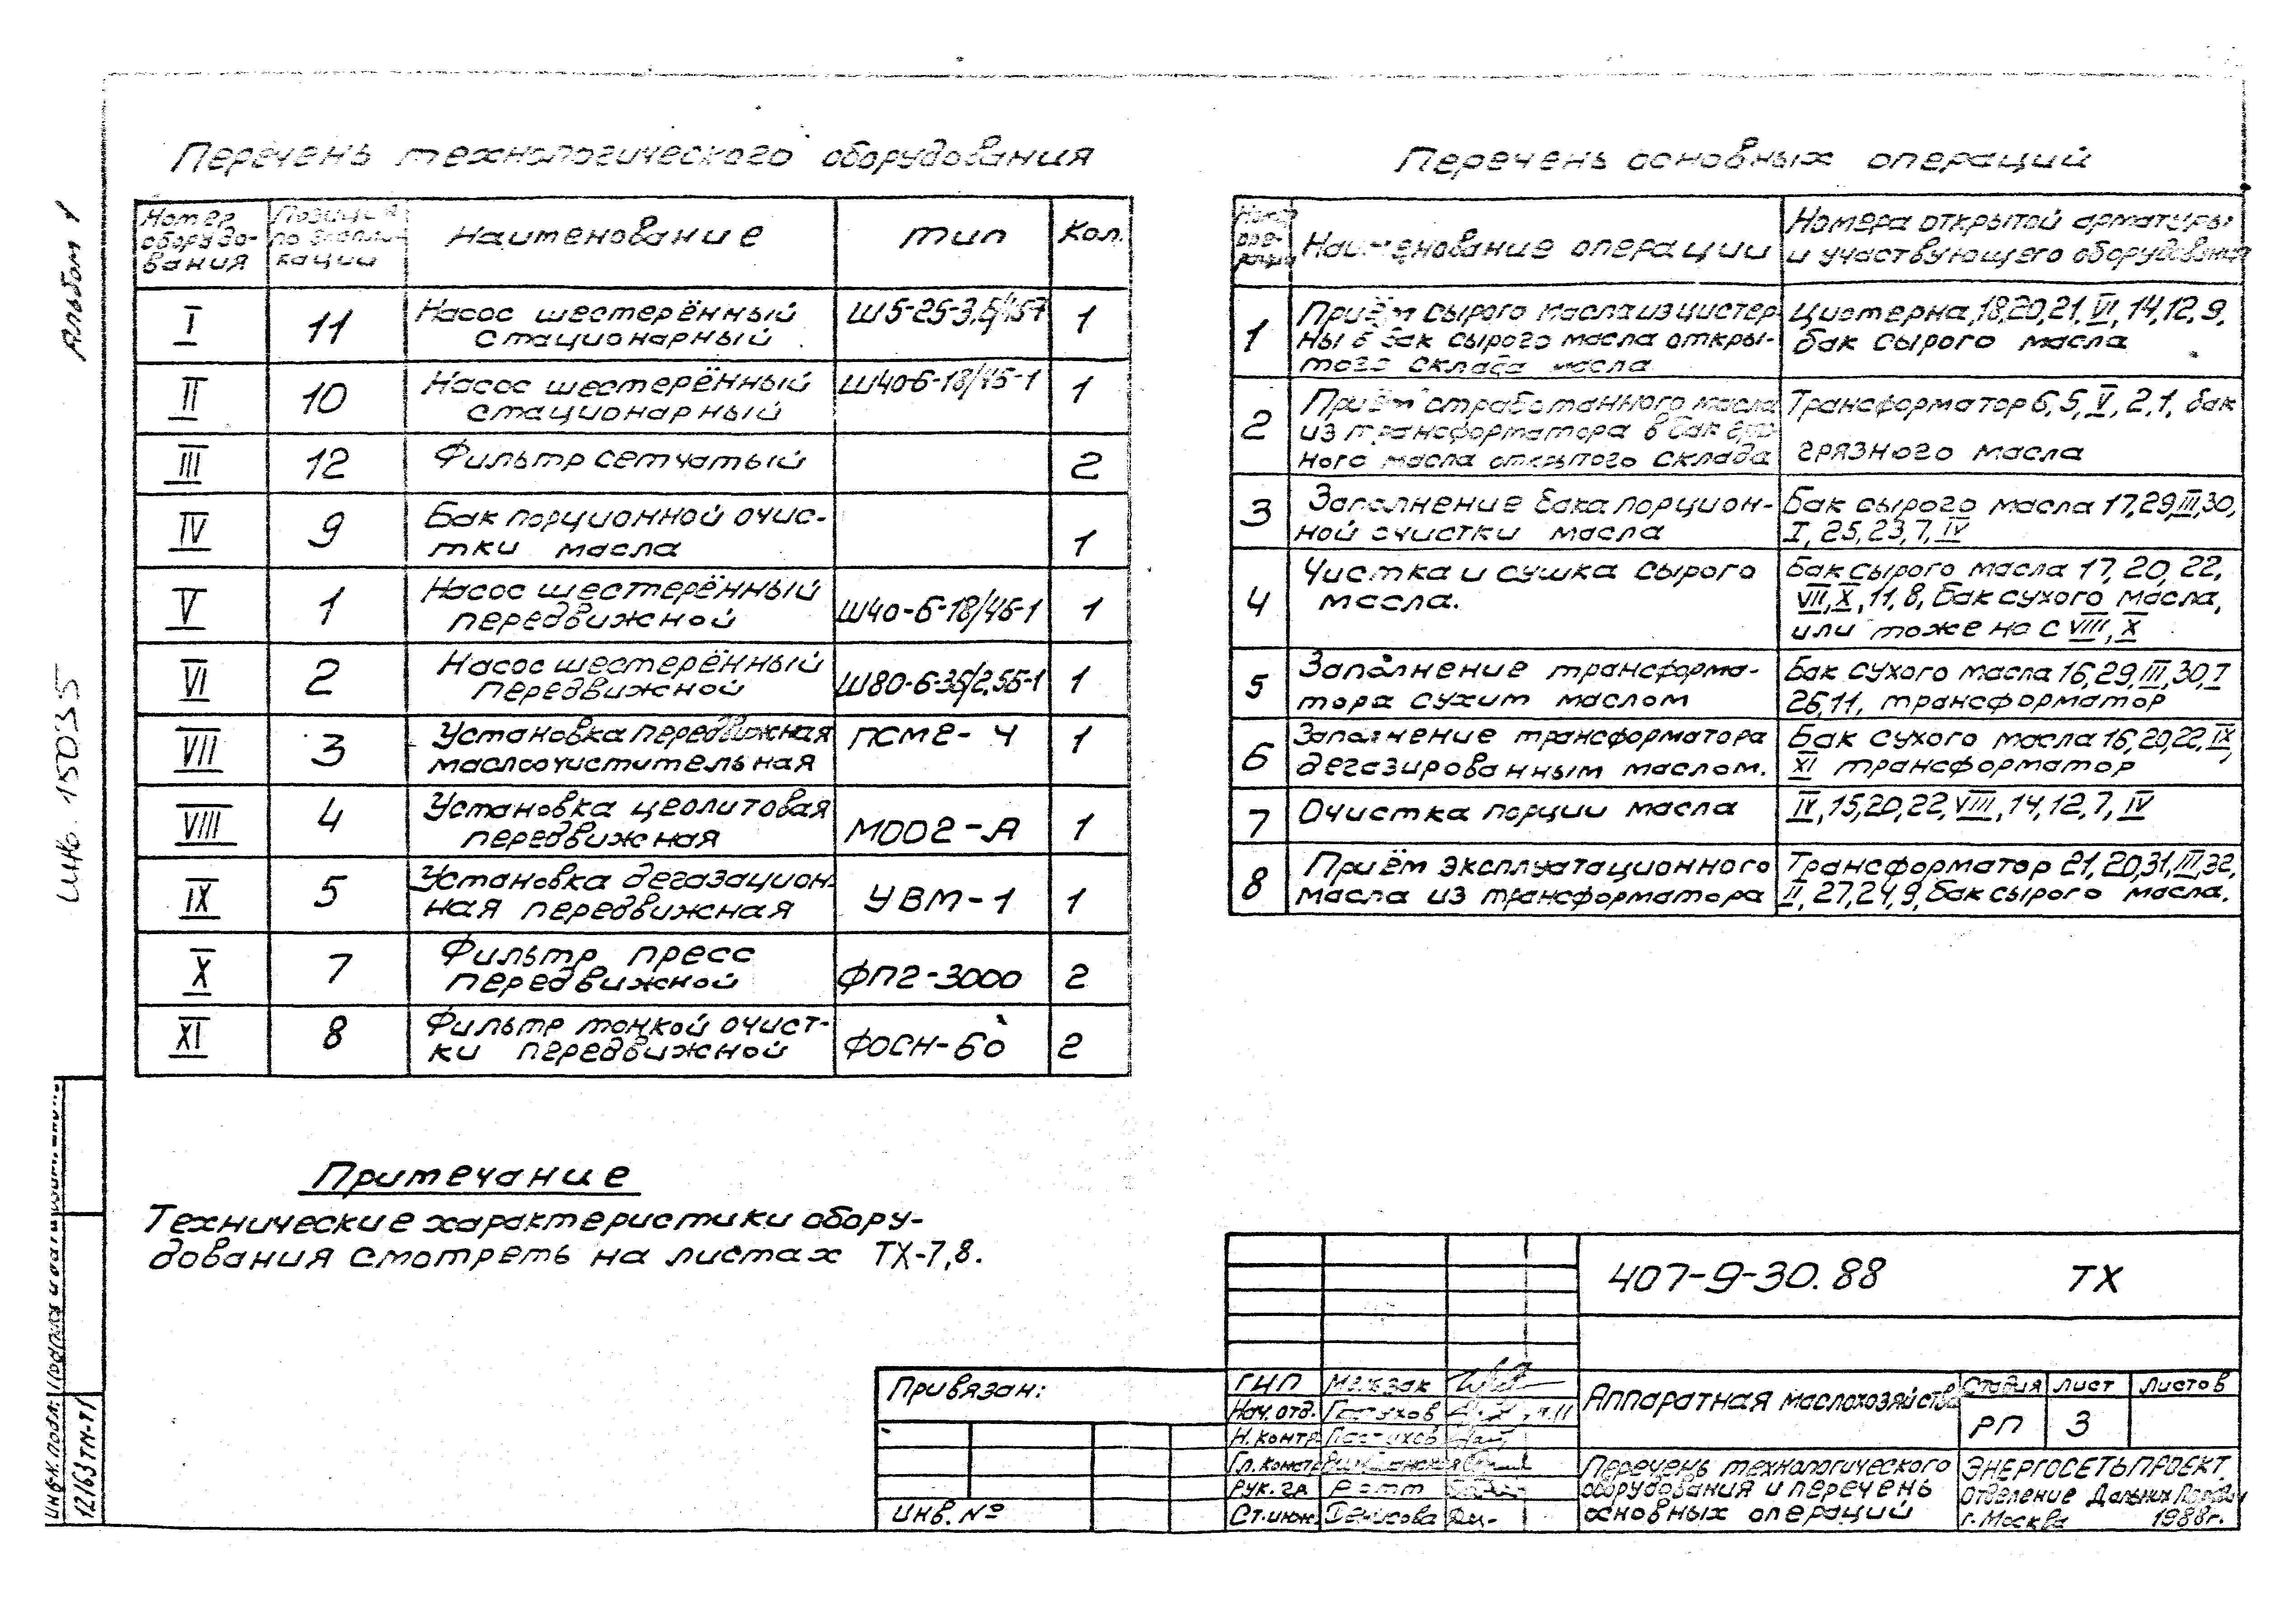 Альбом 1
Инв. 15035
Перечень технологического оборудования
Номер оборудо-вания | Позиция по экспли-кации | Наименование | Тип | Кол.
I | 11 | Насос шестерённый стационарный | Ш5-25-3,6/ | 1
II | 10 | Насос шестерённый стационарный | Ш40-6-18/4Б-1 | 1
III | 12 | Фильтр сетчатый | 2
IV | 9 | Бак порционной очис-тки масла | 1
V | 1 | Насос шестерённый передвижной | Ш40-6-18/4Б-1 | 1
VI | 2 | Насос шестерённый передвижной | Ш80-6-36/2,5Б-1 | 1
VII | 3 | Установка передвижная маслоочистительная | ПСМ2-4 | 1
VIII | 4 | Установка цеолитовая передвижная | М002-А | 1
IX | 5 | Установка дегазацион-ная передвижная | УВМ-1 | 1
X | 7 | Фильтр пресс передвижной | ФП2-3000 | 2
XI | 8 | Фильтр тонкой очист-ки передвижной | ФОСН-60 | 2
Примечание
Технические характеристики обору-
дования смотреть на листах ТХ-7,8.
Перечень основных операций
Наименование операции | Номера открытой арматуры и участвующего оборудования
1 | Приём сырого масла из цистер-ны в бак сырого масла откры-того склада масла | Цистерна,18,20,21,VI,14,12,9, бак сырого масла
2 | Приём отработанного масла из трансформатора в бак гряз-ного масла открытого склада | Трансформатор 6,5,V,2,1, бак грязного масла
3 | Заполнение бака порцион-ной очистки масла | Бак сырого масла 17,29,III,30, I,25,23,7,IV
4 | Чистка и сушка сырого масла. | Бак сырого масла 17,20,22, VII,X,11,8, Бак сухого масла, или тоже но с VIII,X
5 | Заполнение трансформа-тора сухим маслом | Бак сухого масла 16,29,III,30,I 26,11, трансформатор
6 | Заполнение трансформатора дегазированным маслом. | Бак сухого масла 16,20,22,IX, XI трансформатор
7 | Очистка порции масла | IV,15,20,22,VIII,14,12,7,IV
8 | Приём эксплуатационного масла из трансформатора | Трансформатор 21,20,31,III,32, II,27,24,9, Бак сырого масла.
407-9-30.88 ТХ
Привязан:
Инв. №
ГИП
Нач. отд.
Н. контр.
Гл. констр.
Рук. гр. Ротт
Ст. инж. Денисова
Аппаратная маслохозяйства
Стадия Лист Листов
РП 3
Перечень технологического
оборудования и перечень
основных операций
ЭНЕРГОСЕТЬПРОЕКТ
Отделение Дальних Передач
г. Москва 1988г.
Инв.№ подл.
Подпись и дата
12163тм-т1